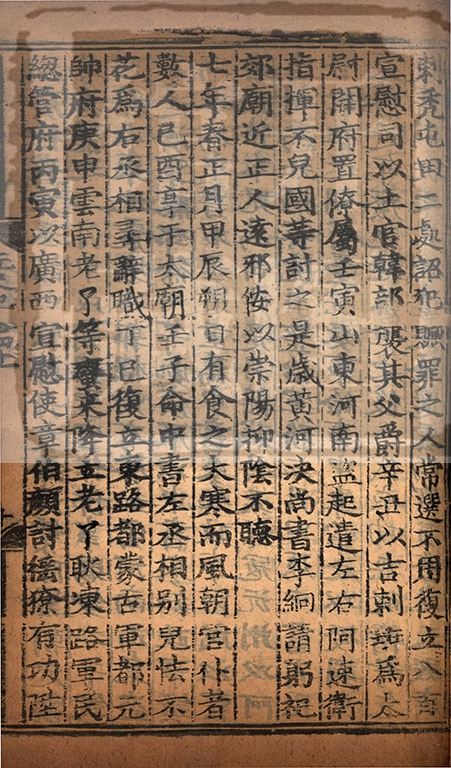 剌禿屯田二處詔犯贓罪之人常選不用復立八百
宣慰司以土官韓部襲其父爵辛丑以吉剌班為太
尉開府置僚屬壬寅山東河南盜起遣左右阿速衛
指揮不兒國等討之是歲黃河决尚書李絅請躬祀
郊廟近正人遠邪佞以崇陽抑陰不聽
七年春正月甲辰朔日有食之大寒而風朝官仆者
數人己酉享于太廟壬子命中書左丞相别兒怯不
花為右丞相尋辭職丁巳復立東路都蒙古軍都元
帥府庚申雲南老丫等蠻来降立老丫耿凍路軍民
總管府丙寅以廣西宣慰使章伯顏討猺獠有功陞